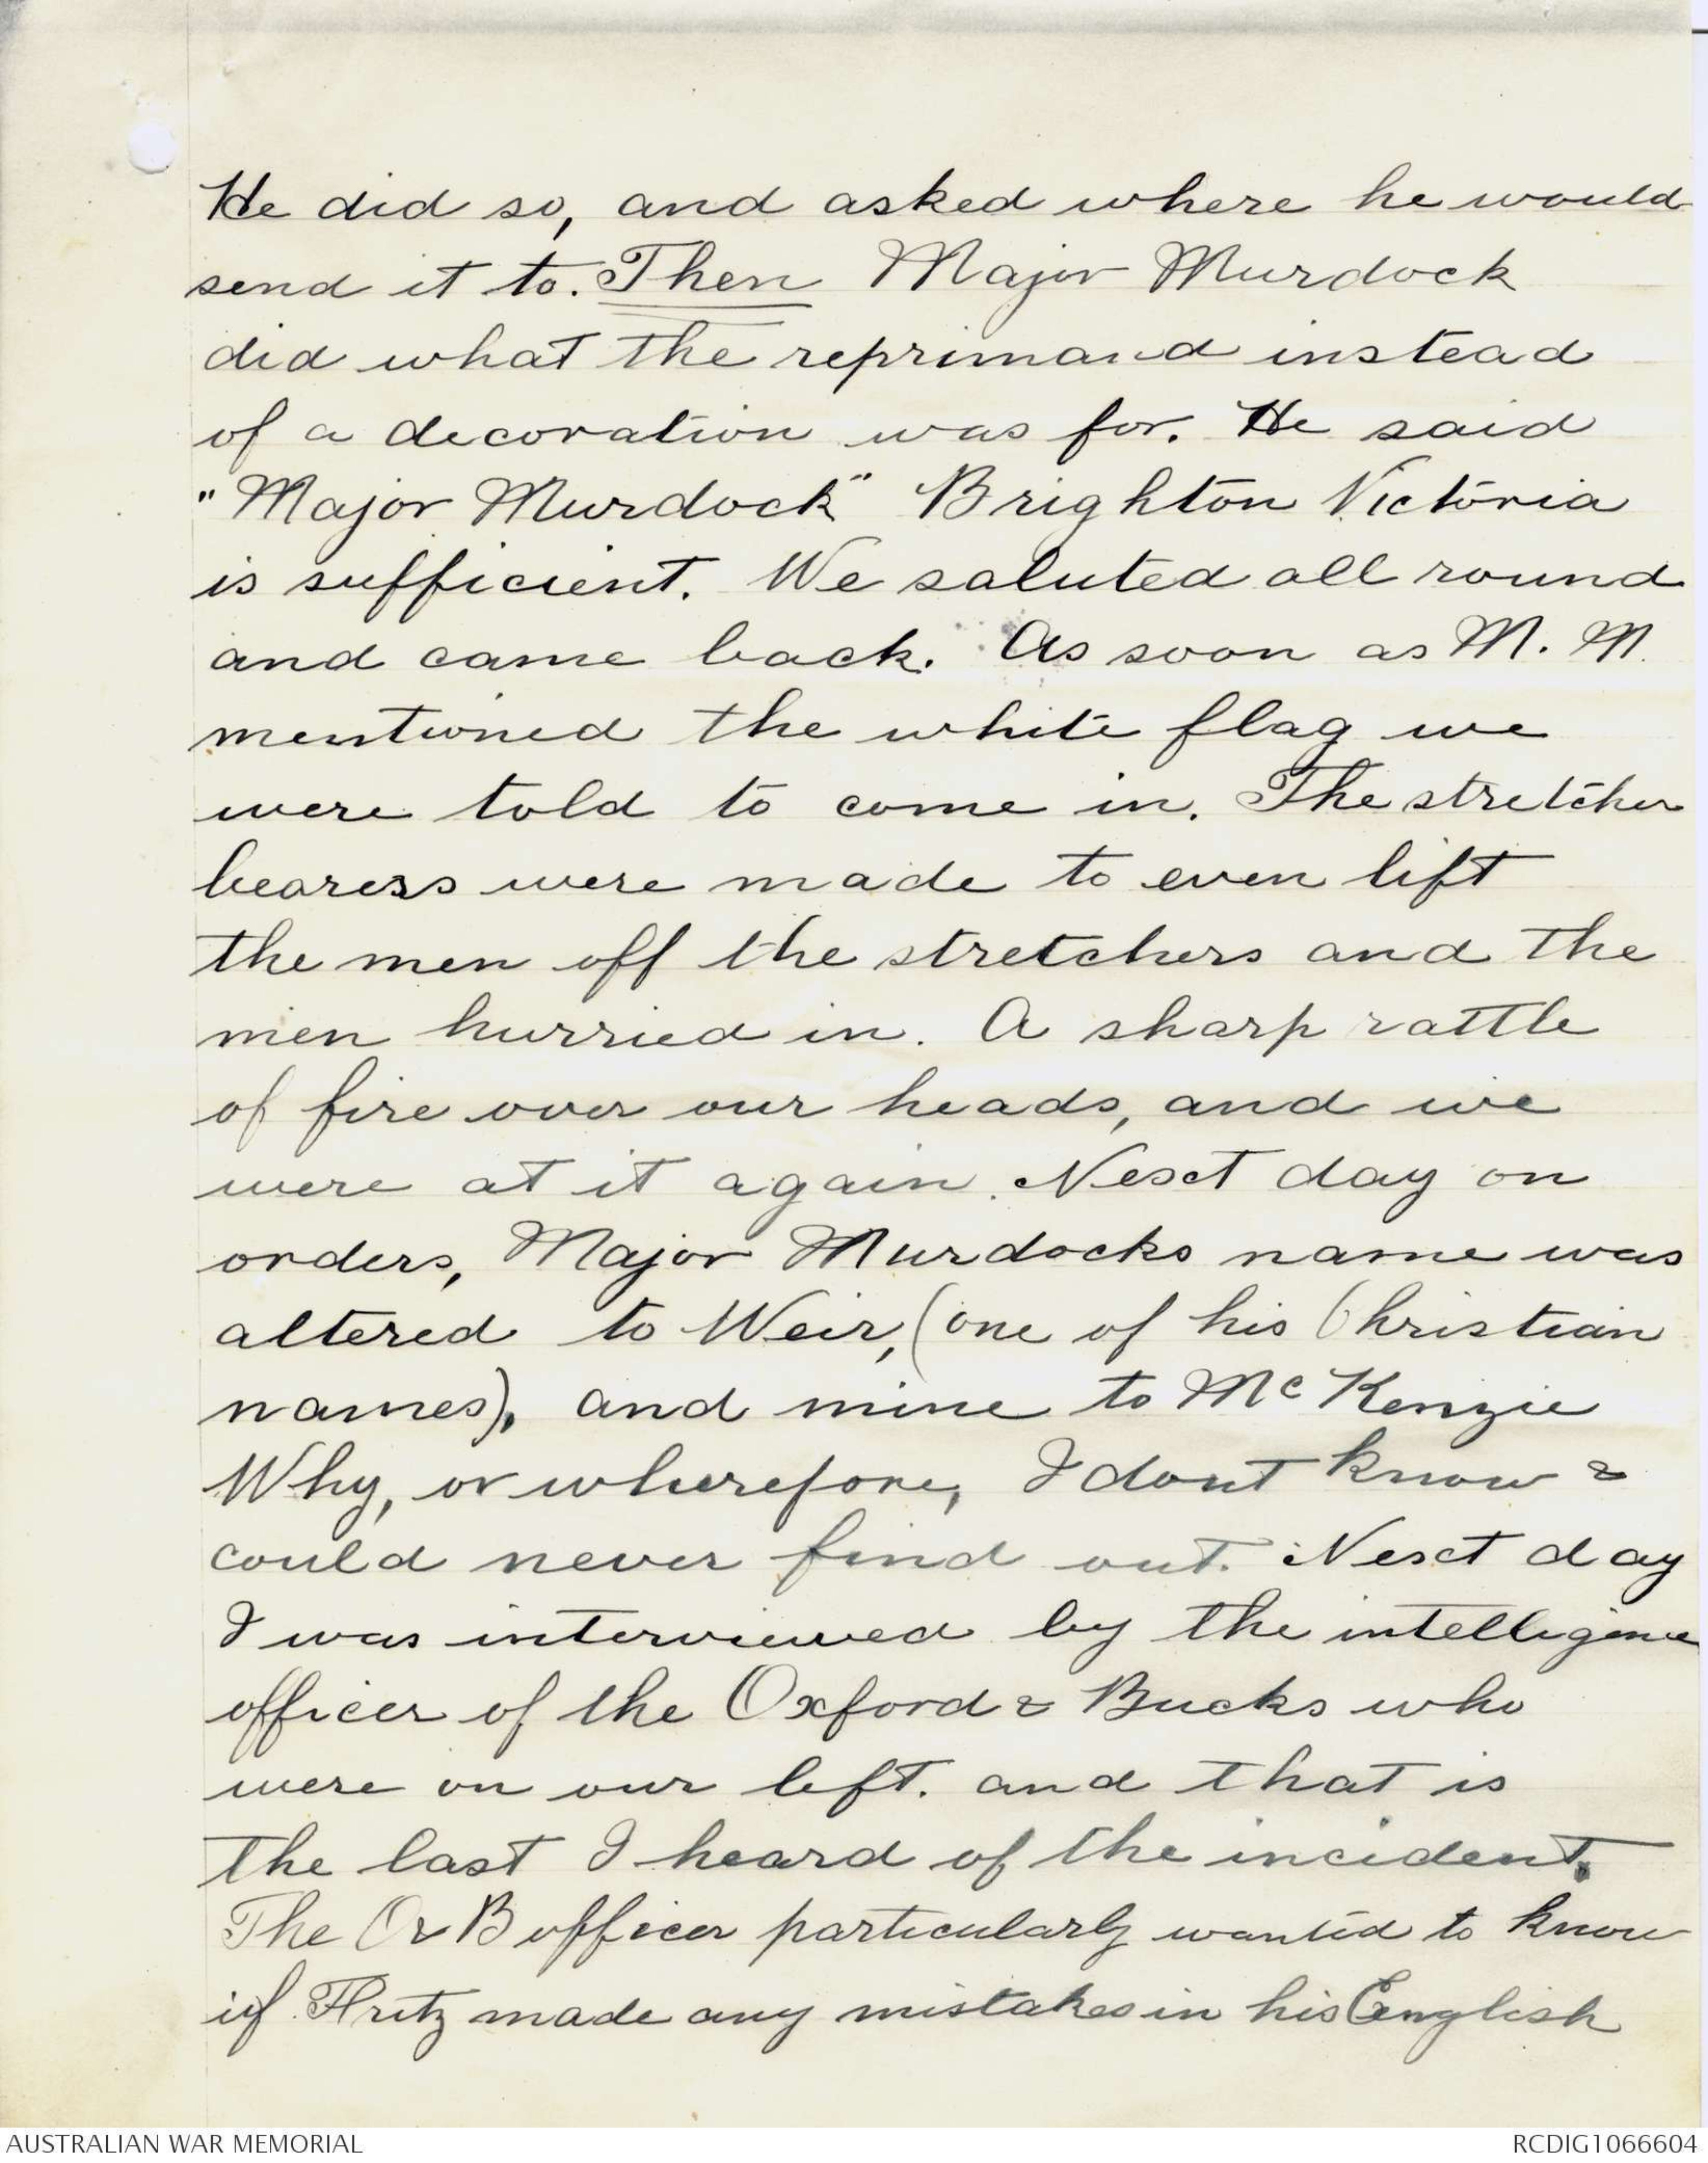 He did so, and asked where he would
send it to. Then Major Murdock
did what the reprimand instead
of a decoration was for. He said
"Major Murdock" Brighton Victoria
is sufficient. We saluted all round
and came back. As soon as M. M.
mentioned the white flag we
were told to come in. The stretcher
bearers were made to even lift
the men off the stretchers and the
men hurried in. A sharp rattle
of fire over our heads, and we
were at it again. Next day on
orders, Major Murdocks name was
altered to Weir, (one of his Christian
names), and mine to McKenzie
Why, or wherefore, I dont know &
could never find out. Next day
I was interviewed by the intelligence
officer of the Oxford & Bucks who
were on our left. and that is
the last I heard of the incident.
The O & B officer particularly wanted to know
if Fritz made any mistakes in his English
AUSTRALIAN WAR MEMORIAL
RCDIG1066604